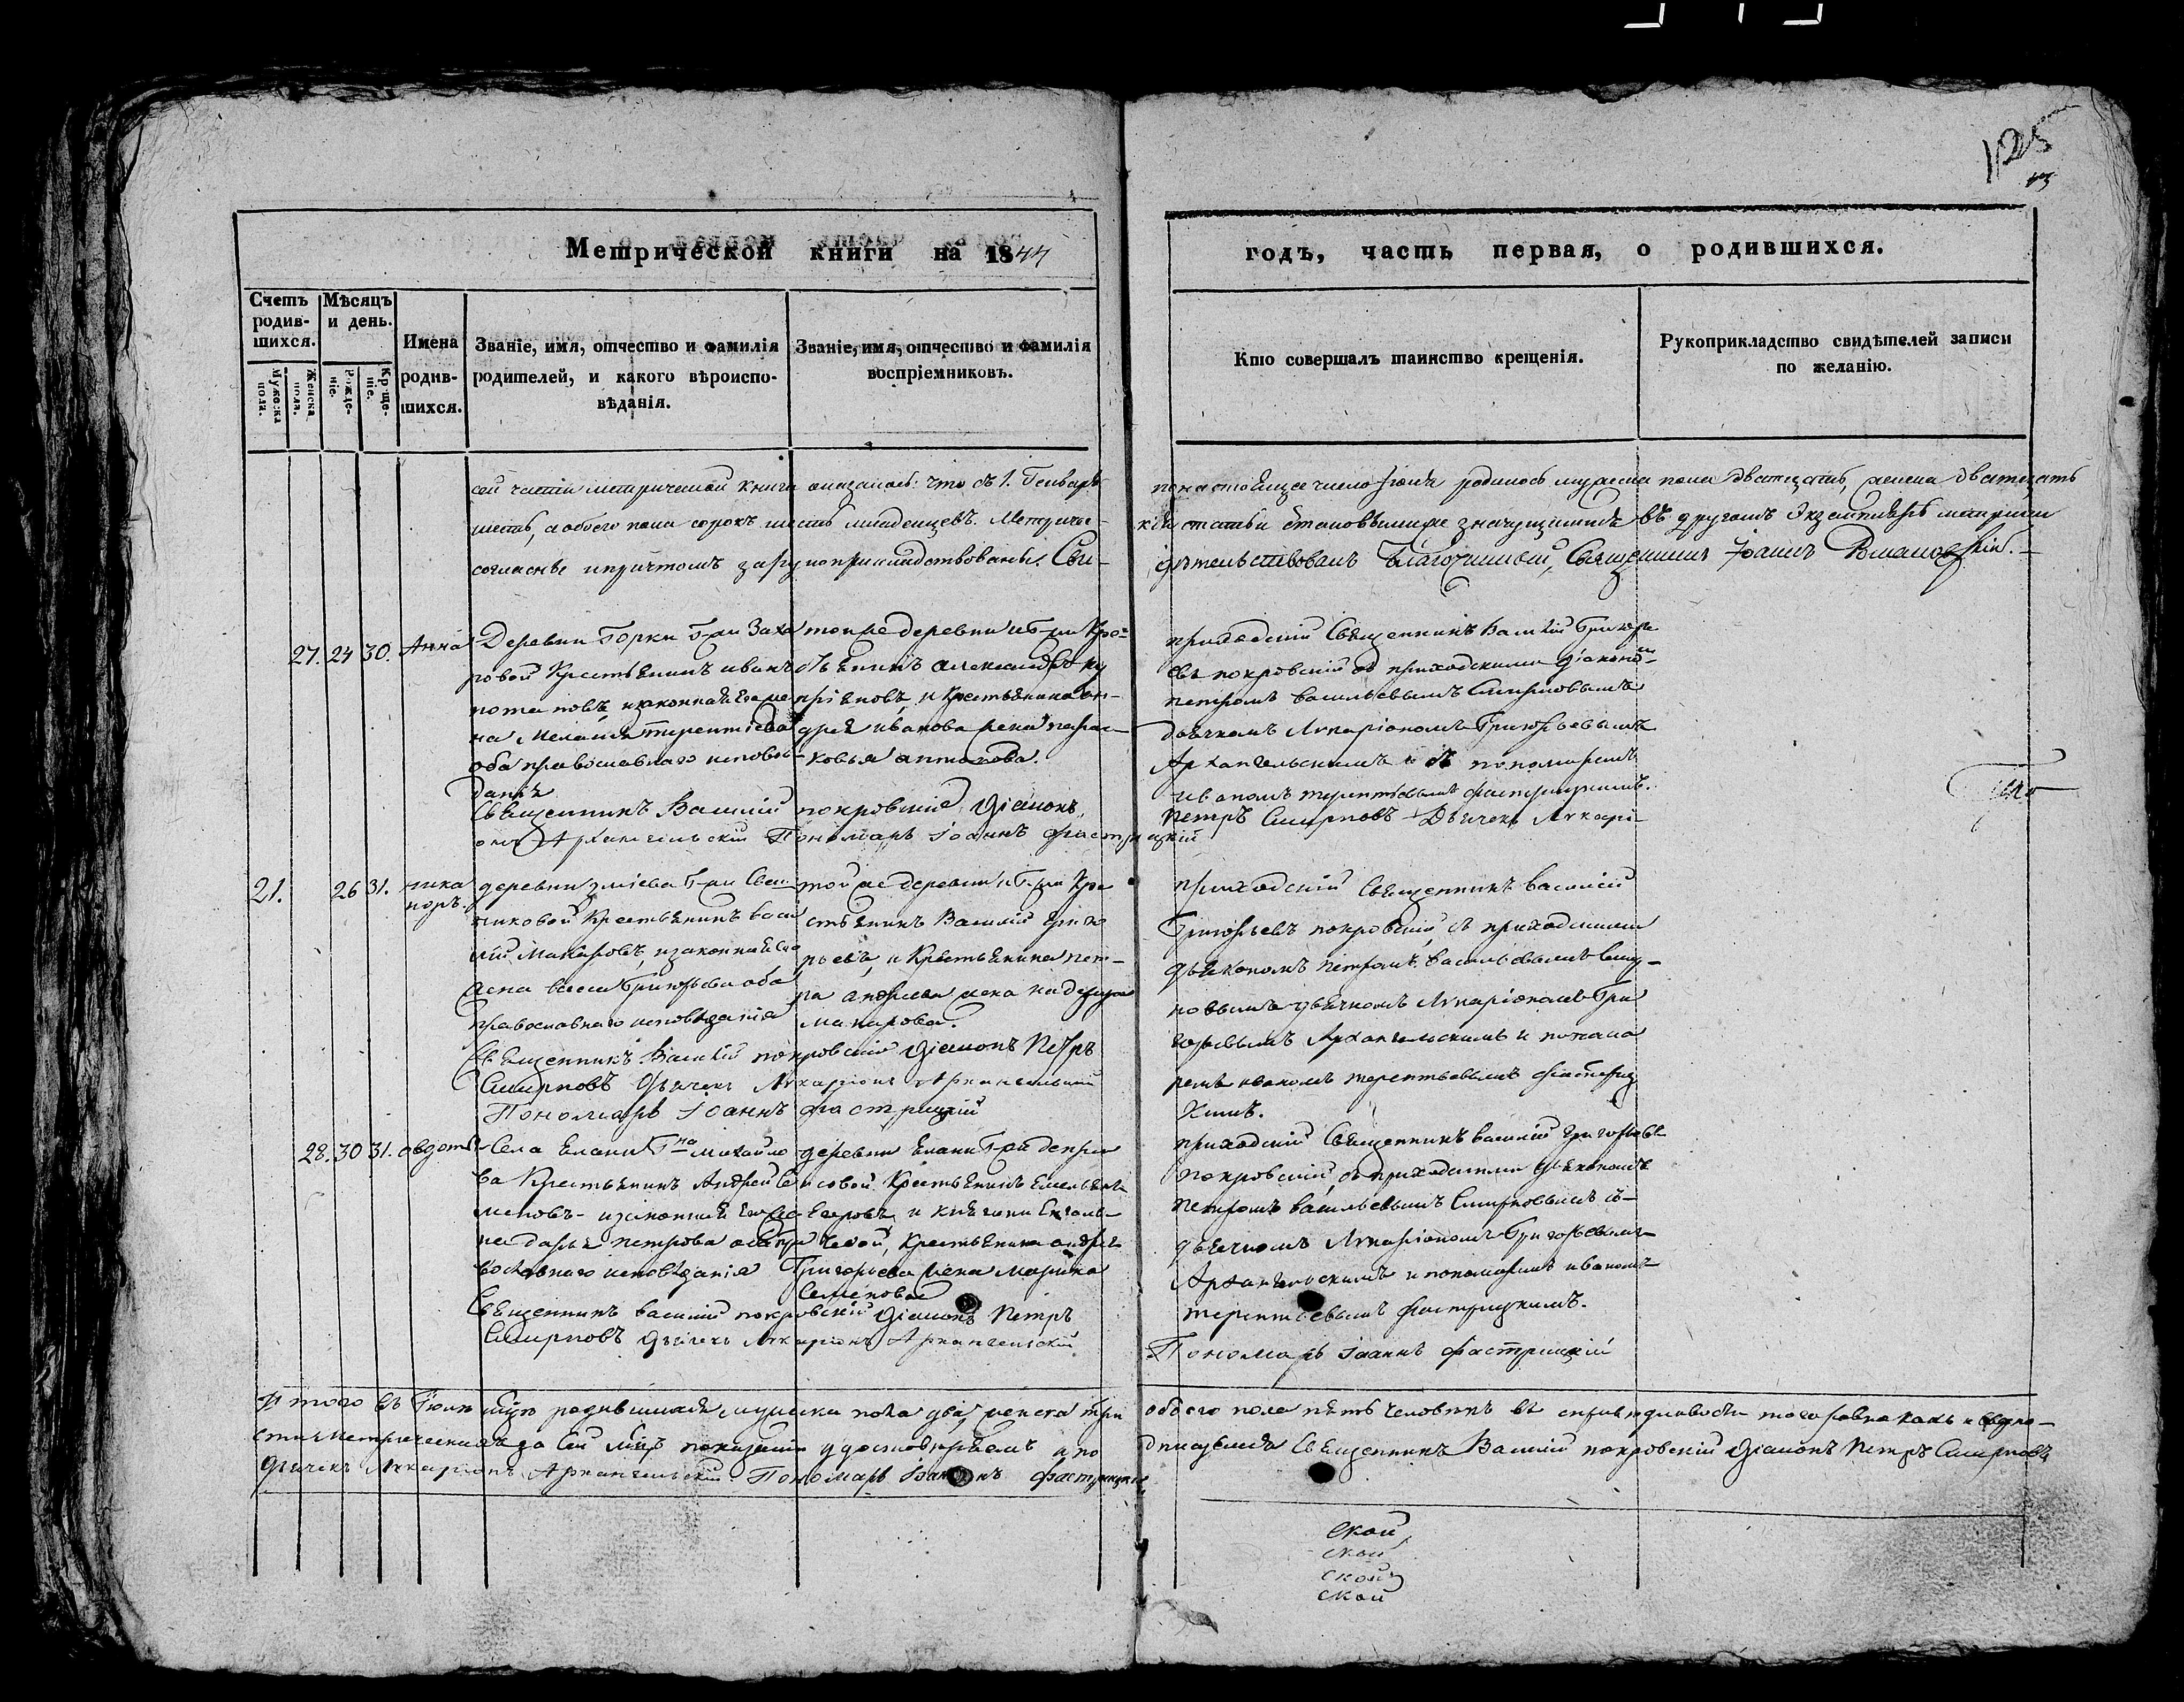 125
Метрической книги на 1844
годъ, часть первая, о родившихся.
Счетъ родив-шихся.
Мужеска пола.
Женска пола.
Мѣсяцъ и день.
Рожде-ніе.
Креще-ніе.
Имена родив-шихся.
Званіе, имя, отчество и фамилія родителей, и какого вѣроиспо-вѣданія.
Званіе, имя, отчество и фамилія воспріемниковъ.
Кто совершалъ таинство крещенія.
Рукоприкладство свидѣтелей записи по желанію.
сей части метрической книги оказалось: что съ 1. Генваря
по настоящее число родилось мужеска пола дватцать, женска дватцать
шесть, а обоего пола сорокъ шесть младенцевъ. Метричес-
кія статьи съ таковыми же значущимися въ другомъ Экземплярѣ метрики
согласны и причтомъ зарукоприкладствованы. Сви-
дѣтельствовалъ Благочинный, Священникъ Іоаннъ
27. 24 30. Анна
Деревни Горки Г-жи Заха
ровой Крестьянинъ иванъ
потаповъ, и законная его же
на Меланія терентіева
оба православнаго исповѣ
данія
той же деревни и Г-жи Кре-
стьянинъ александръ ку
пріяновъ, и Крестьянина ан-
дрея иванова жена парас-
ковья антонова.
приходскій Священникъ Василій Григорь
евъ покровскій съ приходскими діакономъ
петромъ васильевымъ Смирновымъ
дьячкомъ Лукаріономъ Григорьевымъ
Архангельскимъ и пономаремъ
иваномъ терентьевымъ фастрицкимъ.
Священникъ Василій покровскій Діаконъ
Петръ Смирновъ Дьячекъ Лукарі
онъ Архангельскій Пономарь Іоаннъ фастрицкій
21. 26 31. ника
норъ.
деревни змѣева Г-жи Свеш
никовой Крестьянинъ васи
лій Макаровъ, и законная его
жена васса Григорьева оба
православнаго исповѣданія
той же деревни и Г-жи Кре
стьянинъ Василій григо
рьевъ, и Крестьянина пет-
ра андреева жена надежда
макарова.
приходскій Священникъ василій
Григорьевъ покровскій, съ приходскими
дьякономъ петромъ васильевымъ смир-
новымъ дьячкомъ Лукаріономъ Гри
горьевымъ Архангельскимъ и понома
ремъ иваномъ терентьевымъ фастриц
кимъ.
Священникъ Василій покровскій Діаконъ Петръ
Смирновъ Дьячекъ Лукаріонъ Архангельскій
Пономарь Іоаннъ фастрицкій
28. 30 31. овдотья
Села Елани Г-на михайло
ва Крестьянинъ Андрей Се
меновъ - и законная его же
на дарья петрова оба пра
вославнаго исповѣданія
деревни Елани Г-жи
Крестьянинъ Емельянъ
Егоровъ и княгини
Крестьянина андрея
Григорьева жена марина
Семенова
приходскій Священникъ василій григорьевъ
покровскій, съ приходскими дьякономъ
петромъ васильевымъ Смирновымъ съ-
дьячкомъ Лукаріономъ Григорьевымъ
Архангельскимъ и пономаремъ иваномъ
терентьевымъ фастрицкимъ.
Священникъ василій покровскій Діаконъ Петръ
Смирновъ Дьячекъ Лукаріонъ Архангельскій
Пономарь Іоаннъ фастрицкій
Итого въ Іюлѣ мцѣ родившихся мужска пола два, женска три
обоего пола пять человѣкъ въ справедливости
сти метрическихъ за сей мцъ показаній удостовѣряемъ и по
дписуемся Священникъ Василій покровскій Діаконъ Петръ Смирновъ
Дьячекъ Лукаріонъ Архангельскій Пономарь Іоаннъ фастрицкій
Скои
скои
скои
скои